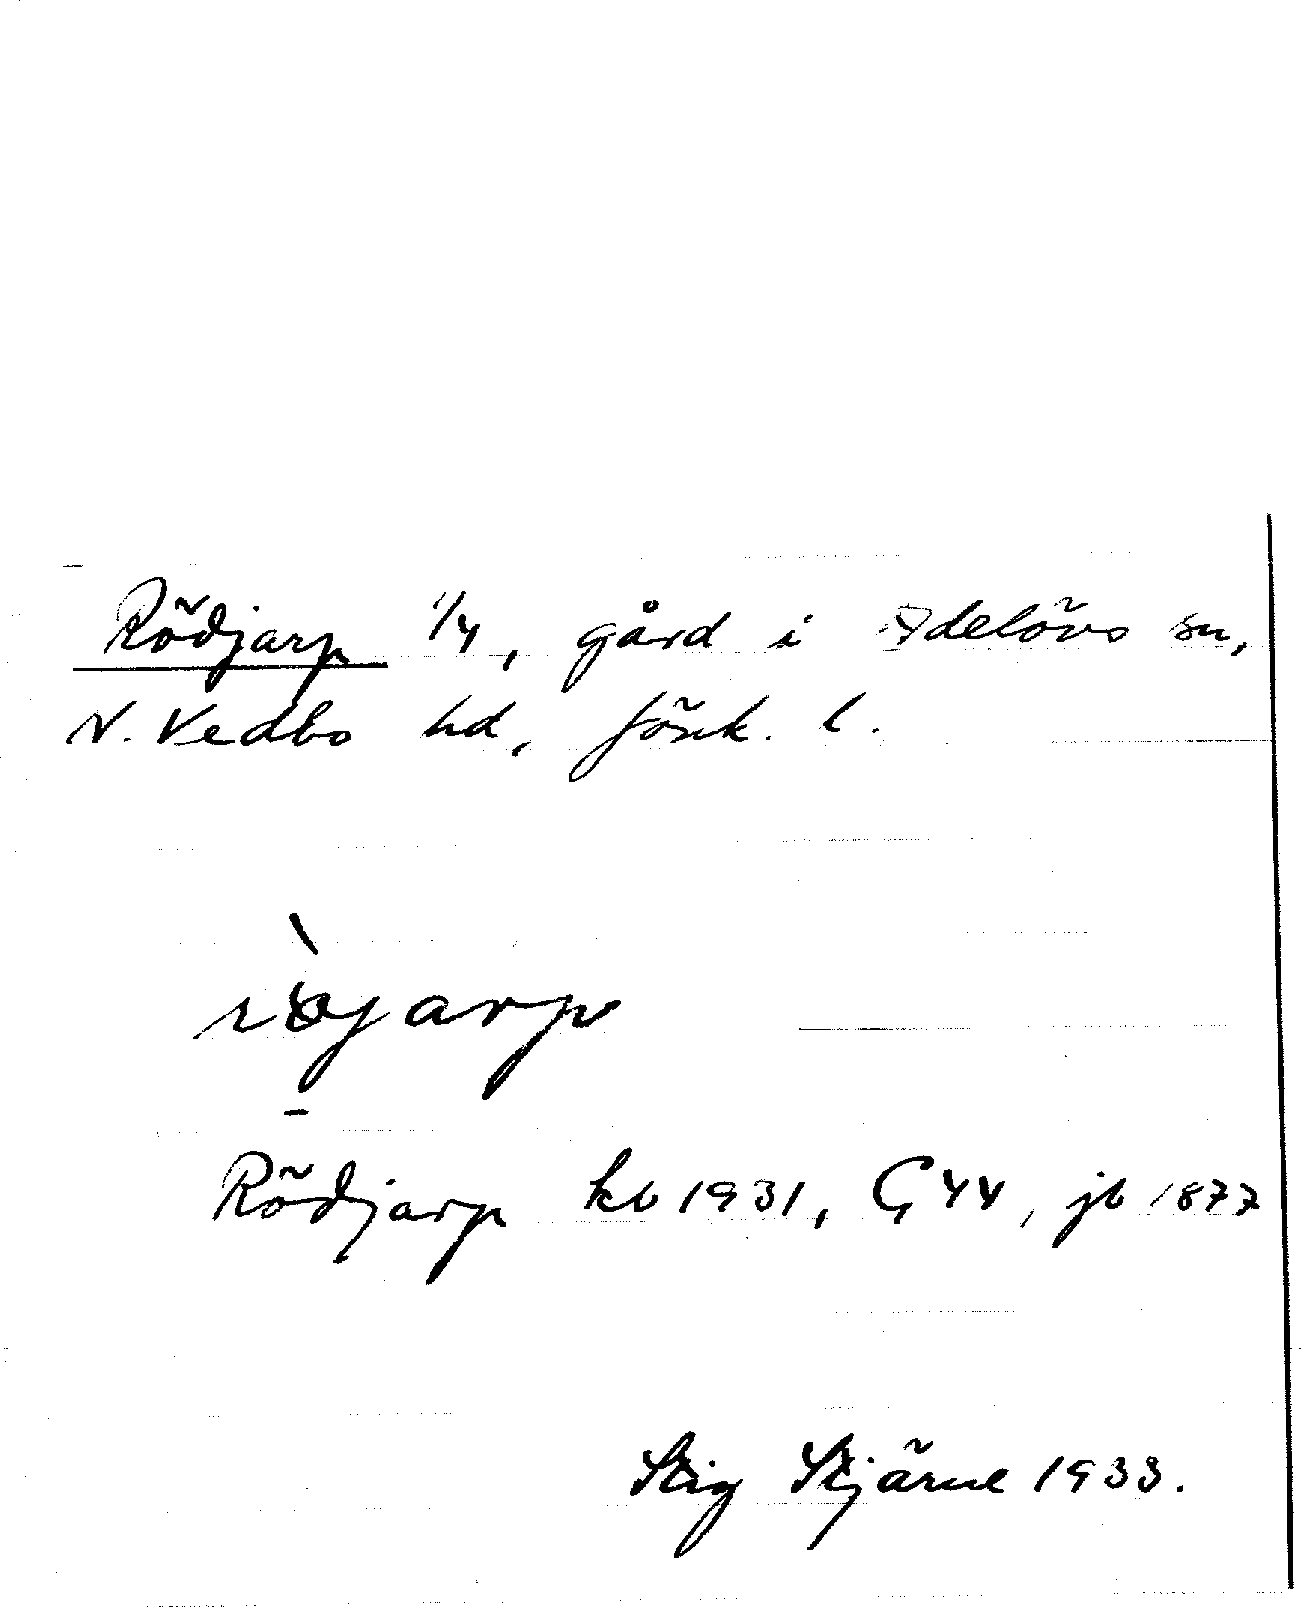 Rödjarp 1/4, gård i Adelövs sn,
N. Vedbo hd, Jönk. l.
Rödjarp kb 1931, G 44, jb 1877
Stig Stjärne 1933.